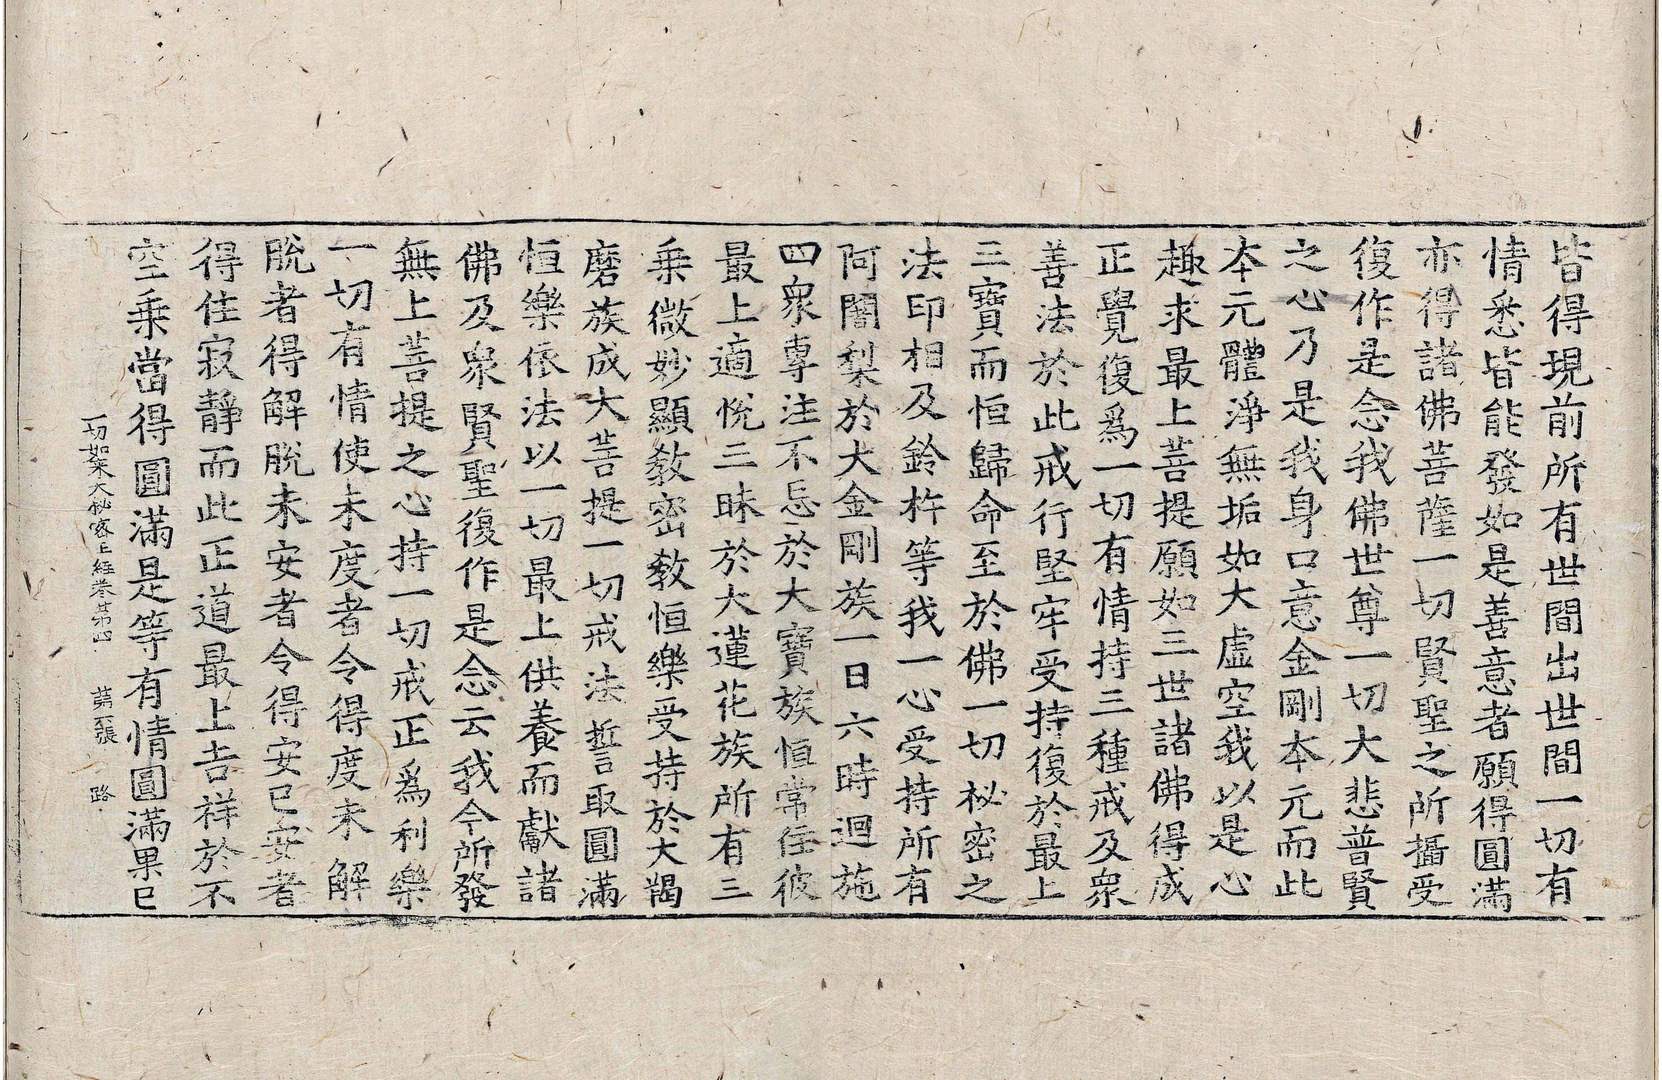 皆得現前所有世間出世間一切有
情悉皆能發如是善意者願得圓滿
亦得諸佛菩薩一切賢聖之所攝受
復作是念我佛世尊一切大悲普賢
之心乃是我身口意金剛本元而此
本元體淨無垢如大虛空我以是心
趣求最上菩提願如三世諸佛得成
正覺復爲一切有情持三種戒及衆
善法於此戒行堅牢受持復於最上
三寶而恒歸命至於佛一切祕密之
法印相及鈴杵等我一心受持所有
阿闍梨於大金剛族一日六時迴施
四衆專注不忘於大寶族恒常住彼
最上適悅三昧於大蓮花族所有三
乗微妙顯教密教恒樂受持於大羯
磨族成大菩提一切戒法誓取圓滿
恒樂依法以一切最上供養而獻諸
佛及衆賢聖復作是念云我今所發
無上菩提之心持一切戒正爲利樂
一切有情使未度者令得度未解
脫者得解脫未安者令得安已安者
得住寂靜而此正道最上吉祥於不
空乗當得圓滿是等有情圓滿果已
一切如來大秘密王經卷第四 第張 路